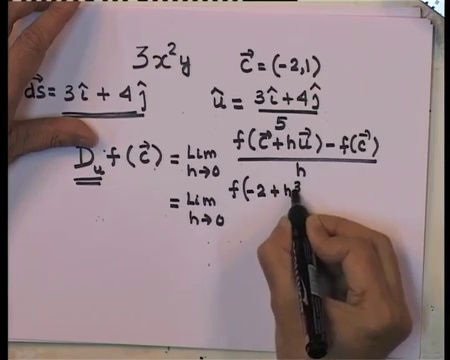 3x²y
c⃗ = (-2,1)
d⃗s = 3î + 4ĵ
û = 3î + 4ĵ / 5
D_u f(c⃗) = Lim h→0 f(c⃗ + hu⃗) - f(c⃗) / h
= Lim h→0 f(-2 + h3